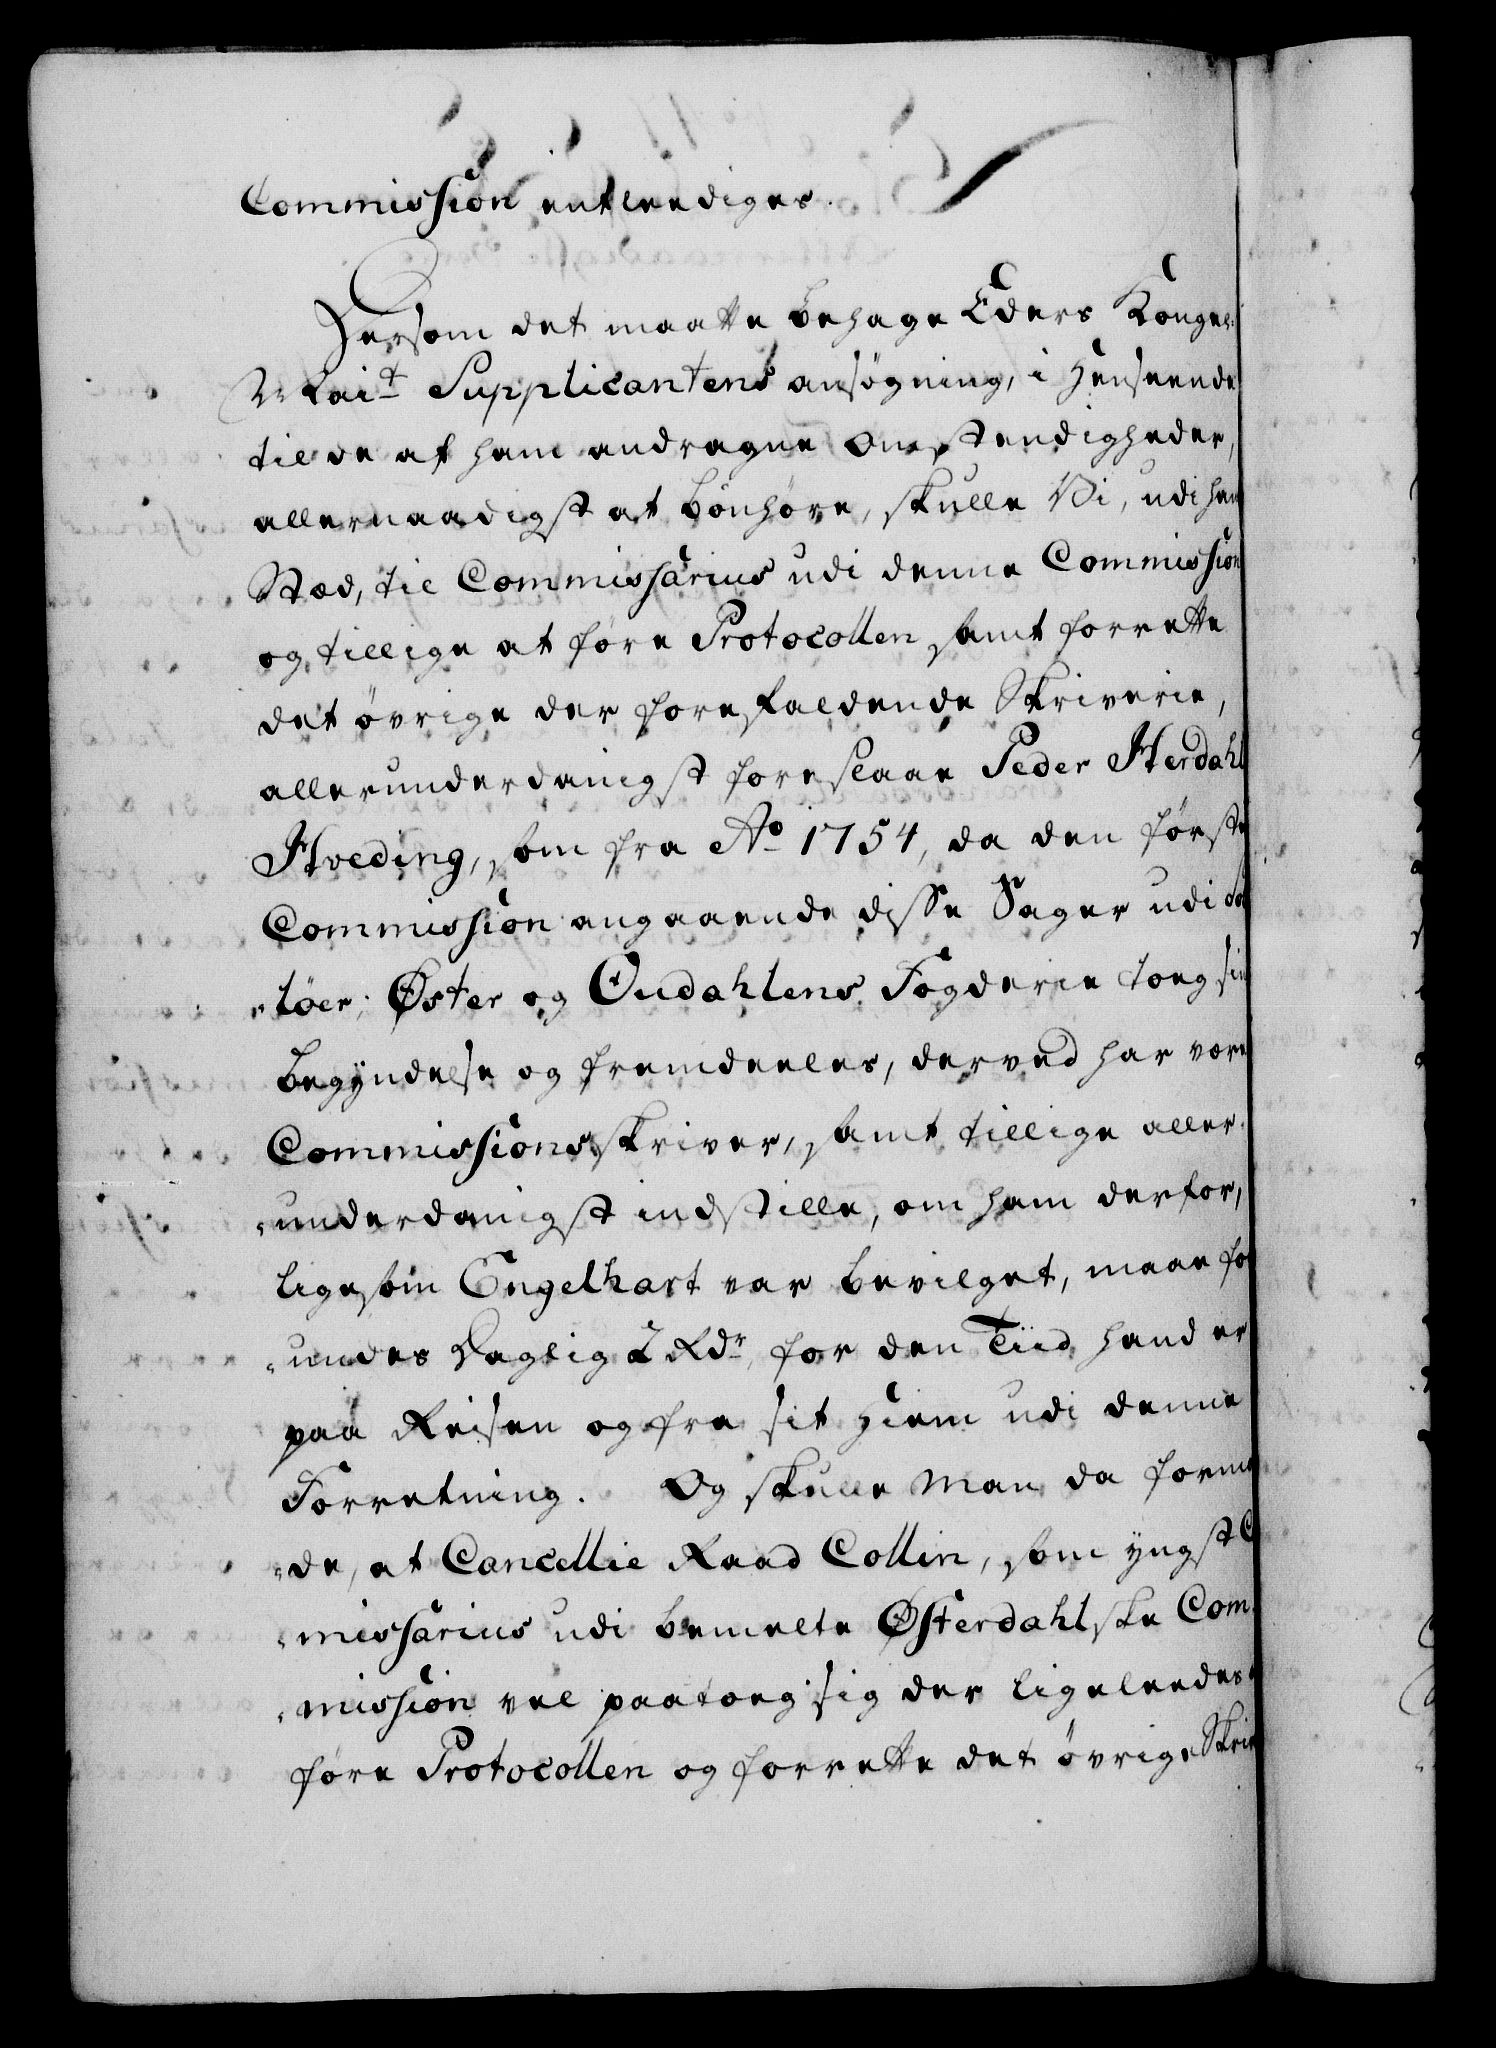 Commission entleediges.
Dersom det maatte behage Eders Kongel:
Mai:t Supplicantens ansögning, i Henseende
til de af ham andragne Omstendigheder,
allernaadigst at bönhöre, skulle Vi, udi hans
Stæd, til Commissarius udi denne Commission
og tillige at före Protocollen samt forrette
det övrige der forefaldende Skriverie,
allerunderdanigst foreslaae Peder Herdahl
Hveding, som fra Ao 1754, da den förste
Commission angaaende disse Sager udi Sol
"löer, Øster og Oudahlens Fogderie toeg sin
begyndelse og fremdeeles, derved har være
Commissionsskriver, samt tillige aller-
"underdanigst indstille, om ham derfor,
ligesom Engelhart var bevilget, maae for
"undes Daglig 2 Rdr, for den Tiid hand er
paa Reisen og fra sit Hiem udi denne
Forretning. Og skulle Man da forme
"de, at Cancellie Raad Collin, som yngst C
"missarius udi bemelte Østerdahlske Com-
"mission vel paatoeg sig der ligeleedes
före Protocollen og forrette det övrige Skriv